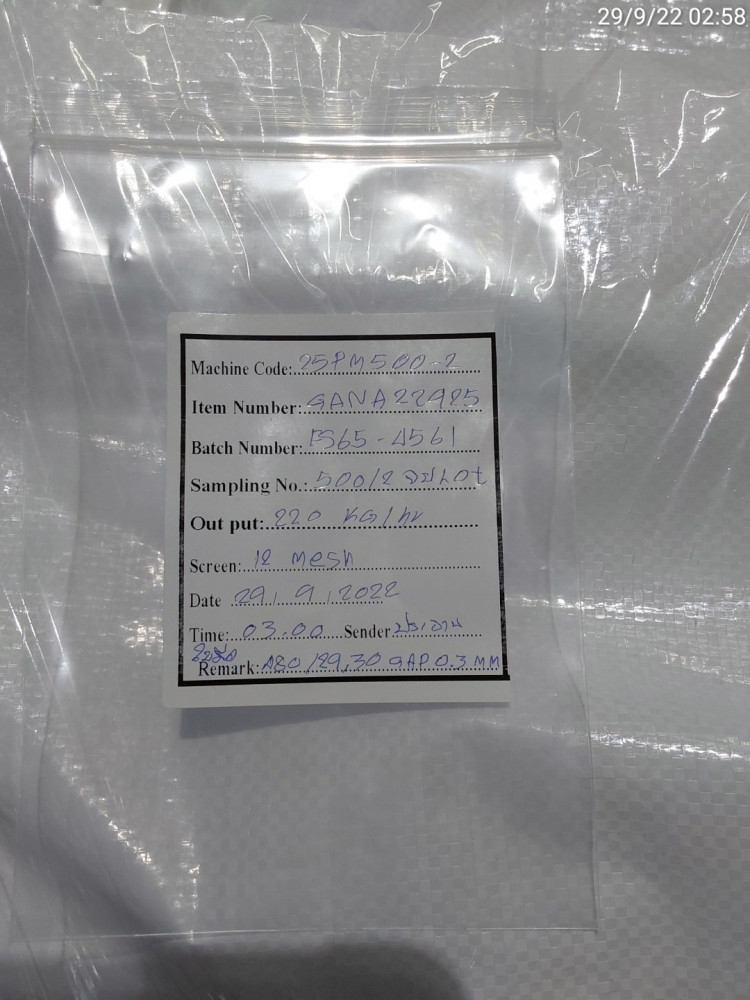 29/9/22 02:58
Machine Code: 25PM500-2
Item Number: GANA22925
Batch Number: FS65-4561
Sampling No.: 500/2 จบLot
Out put: 220 KG/hr
Screen: 12 mesh
Date 29/9/2022
Time: 03.00 Sender
Remark: 29,30 GAP 0.3 MM